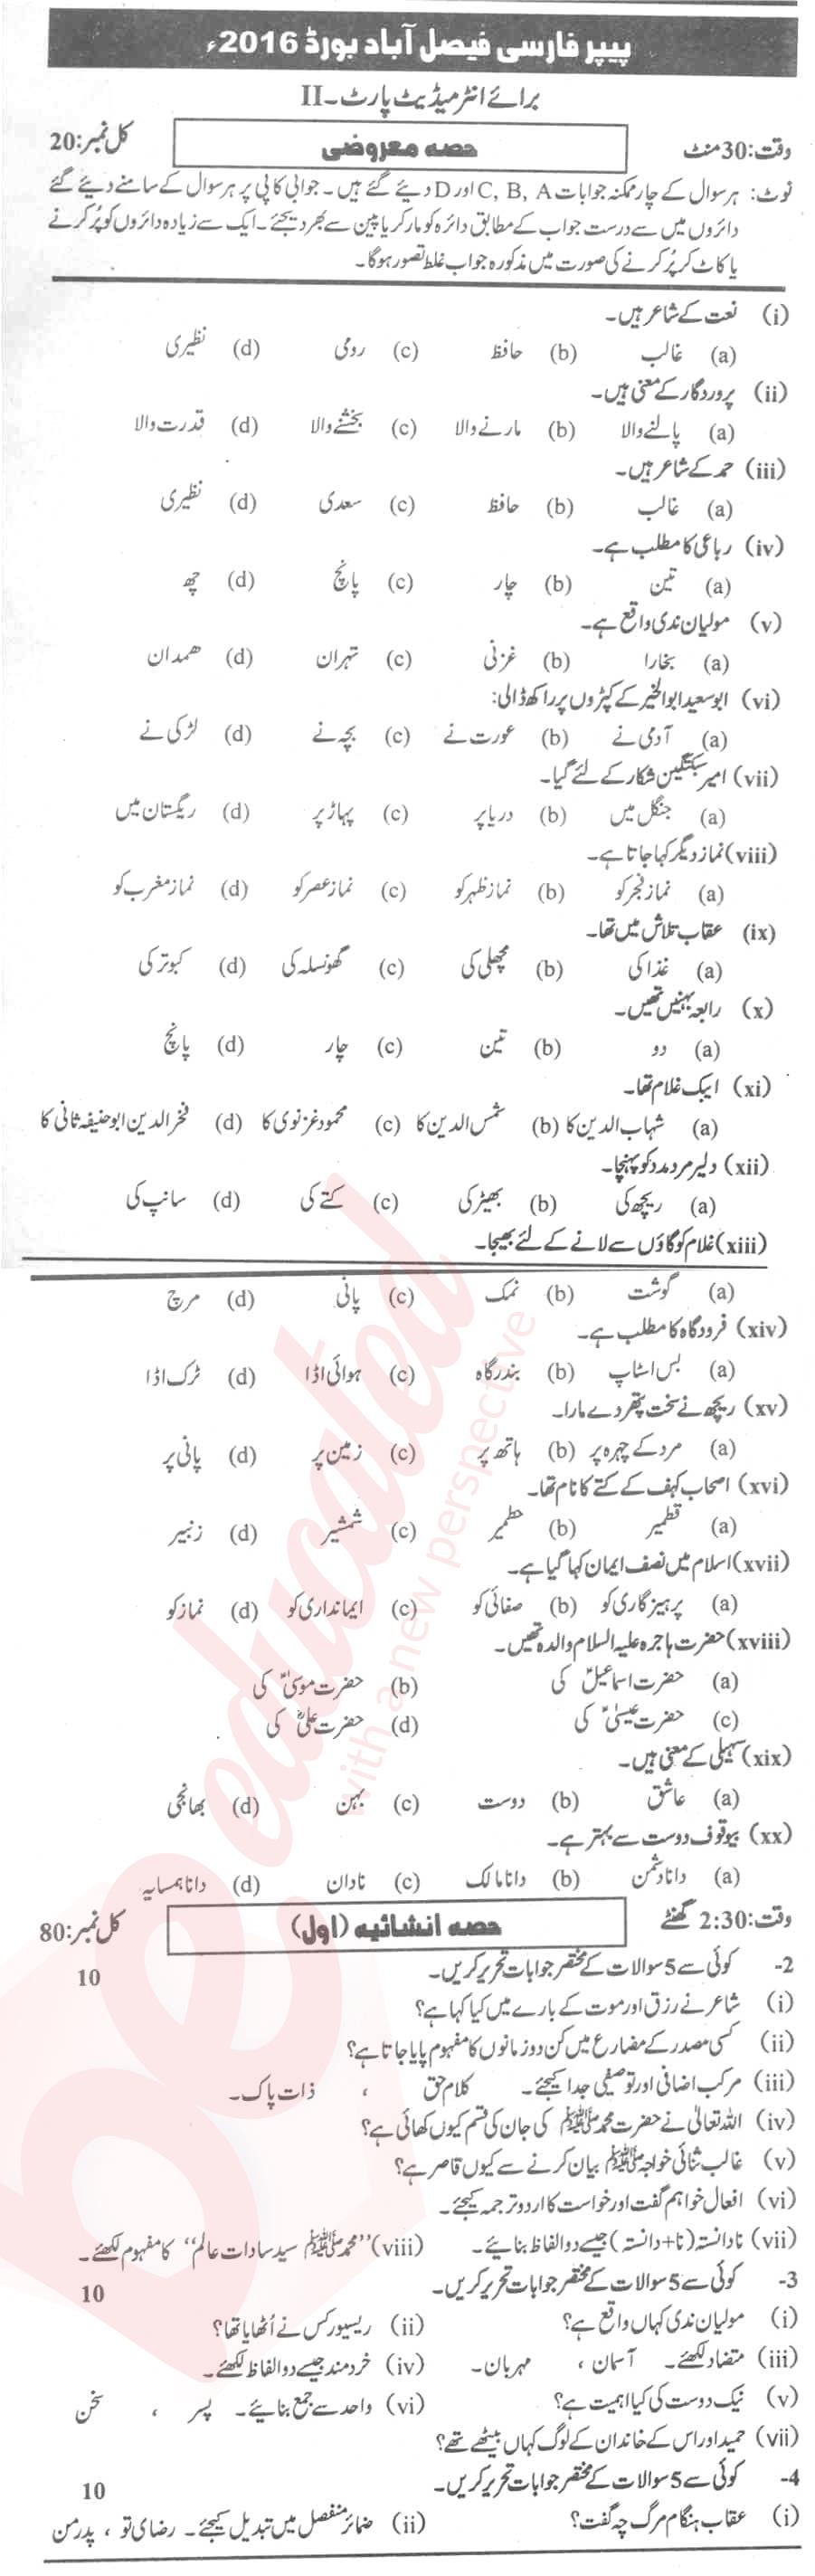 پیپر فارسی فیصل آباد بورڈ 2016ء
برائے انٹرمیڈیٹ پارٹ۔II
وقت:30منٹ حصہ معروضی کل نمبر:20
نوٹ: ہر سوال کے چار ممکنہ جوابات C, B, A اور D دیئے گئے ہیں۔ جوابی کاپی پر ہر سوال کے سامنے دیئے گئے
دائروں میں سے درست جواب کے مطابق دائرہ کو مارکر یا پین سے بھر دیجئے۔ ایک سے زیادہ دائروں کو پُر کرنے
یا کاٹ کر پُر کرنے کی صورت میں مذکورہ جواب غلط تصور ہوگا۔
(i) نعت کے شاعر ہیں۔
(a) غالب (b) حافظ (c) رومی (d) نظیری
(ii) پروردگار کے معنی ہیں۔
(a) پالنے والا (b) مارنے والا (c) بخشنے والا (d) قدرت والا
(iii) حمد کے شاعر ہیں۔
(a) غالب (b) حافظ (c) سعدی (d) نظیری
(iv) رباعی کا مطلب ہے۔
(a) تین (b) چار (c) پانچ (d) چھ
(v) مولیان ندی واقع ہے۔
(a) بخارا (b) غزنی (c) تہران (d) ھمدان
(vi) ابوسعید ابوالخیر کے کپڑوں پر راکھ ڈالی:
(a) آدمی نے (b) عورت نے (c) بچہ نے (d) لڑکی نے
(vii) امیر سبکتگین شکار کے لئے گیا۔
(a) جنگل میں (b) دریا پر (c) پہاڑ پر (d) ریگستان میں
(viii) نماز دیگر کہا جاتا ہے۔
(a) نماز فجر کو (b) نماز ظہر کو (c) نماز عصر کو (d) نماز مغرب کو
(ix) عقاب تلاش میں تھا۔
(a) غذا کی (b) مچھلی کی (c) گھونسلہ کی (d) کبوتر کی
(x) رابعہ بہنیں تھیں۔
(a) دو (b) تین (c) چار (d) پانچ
(xi) ایبک غلام تھا۔
(a) شہاب الدین کا (b) شمس الدین کا (c) محمود غزنوی کا (d) فخر الدین ابوحنیفہ ثانی کا
(xii) دلیر مرد مدد کو پہنچا۔
(a) ریچھ کی (b) بھیڑ کی (c) کتے کی (d) سانپ کی
(xiii) غلام کو گاؤں سے لانے کے لئے بھیجا۔
(a) گوشت (b) نمک (c) پانی (d) مرچ
(xiv) فرودگاہ کا مطلب ہے۔
(a) بس اسٹاپ (b) بندرگاہ (c) ہوائی اڈا (d) ٹرک اڈا
(xv) ریچھ نے سخت پتھر دے مارا۔
(a) مرد کے چہرہ پر (b) ہاتھ پر (c) زمین پر (d) پانی پر
(xvi) اصحاب کہف کے کتے کا نام تھا۔
(a) قطمیر (b) حطمیر (c) شمشیر (d) زنبیر
(xvii) اسلام میں نصف ایمان کہا گیا ہے۔
(a) پرہیزگاری کو (b) صفائی کو (c) ایمانداری کو (d) نماز کو
(xviii) حضرت ہاجرہ علیہ السلام والدہ تھیں۔
(a) حضرت اسماعیلؑ کی (b) حضرت موسیٰؑ کی
(c) حضرت عیسیٰؑ کی (d) حضرت علیؓ کی
(xix) سہیلی کے معنی ہیں۔
(a) عاشق (b) دوست (c) بہن (d) بھانجی
(xx) بیوقوف دوست سے بہتر ہے۔
(a) دانا دشمن (b) دانا مالک (c) نادان (d) دانا ہمسایہ
وقت:2:30 گھنٹے حصہ انشائیہ (اول) کل نمبر:80
2- کوئی سے 5 سوالات کے مختصر جوابات تحریر کریں۔ 10
(i) شاعر نے رزق اور موت کے بارے میں کیا کہا ہے؟
(ii) کسی مصدر کے مضارع میں کن دو زمانوں کا مفہوم پایا جاتا ہے؟
(iii) مرکب اضافی اور توصیفی جدا کیجئے۔ کلام حق ، ذات پاک۔
(iv) اللہ تعالیٰ نے حضرت محمد ﷺ کی جان کی قسم کیوں کھائی ہے؟
(v) غالب ثنائی خواجہ ﷺ بیان کرنے سے کیوں قاصر ہے؟
(vi) افعال خواہم گفت اور خواست کا اردو ترجمہ کیجئے۔
(vii) نادانستہ (نا+دانستہ) جیسے دو الفاظ بنائیے۔ (viii) "محمد ﷺ سید سادات عالم" کا مفہوم لکھئے۔
3- کوئی سے 5 سوالات کے مختصر جوابات تحریر کریں۔ 10
(i) مولیان ندی کہاں واقع ہے؟ (ii) ریسیور کس نے اُٹھایا تھا؟
(iii) متضاد لکھئے۔ آسمان ، مہربان۔ (iv) خردمند جیسے دو الفاظ لکھئے۔
(v) نیک دوست کی کیا اہمیت ہے؟ (vi) واحد سے جمع بنائیے۔ پسر ، سخن
(vii) حمید اور اس کے خاندان کے لوگ کہاں بیٹھے تھے؟
4- کوئی سے 5 سوالات کے مختصر جوابات تحریر کریں۔ 10
(i) عقاب ہنگام مرگ چہ گفت؟ (ii) ضمائر منفصل میں تبدیل کیجئے۔ رضای تو ، پدر من
beeducated
with a new perspective